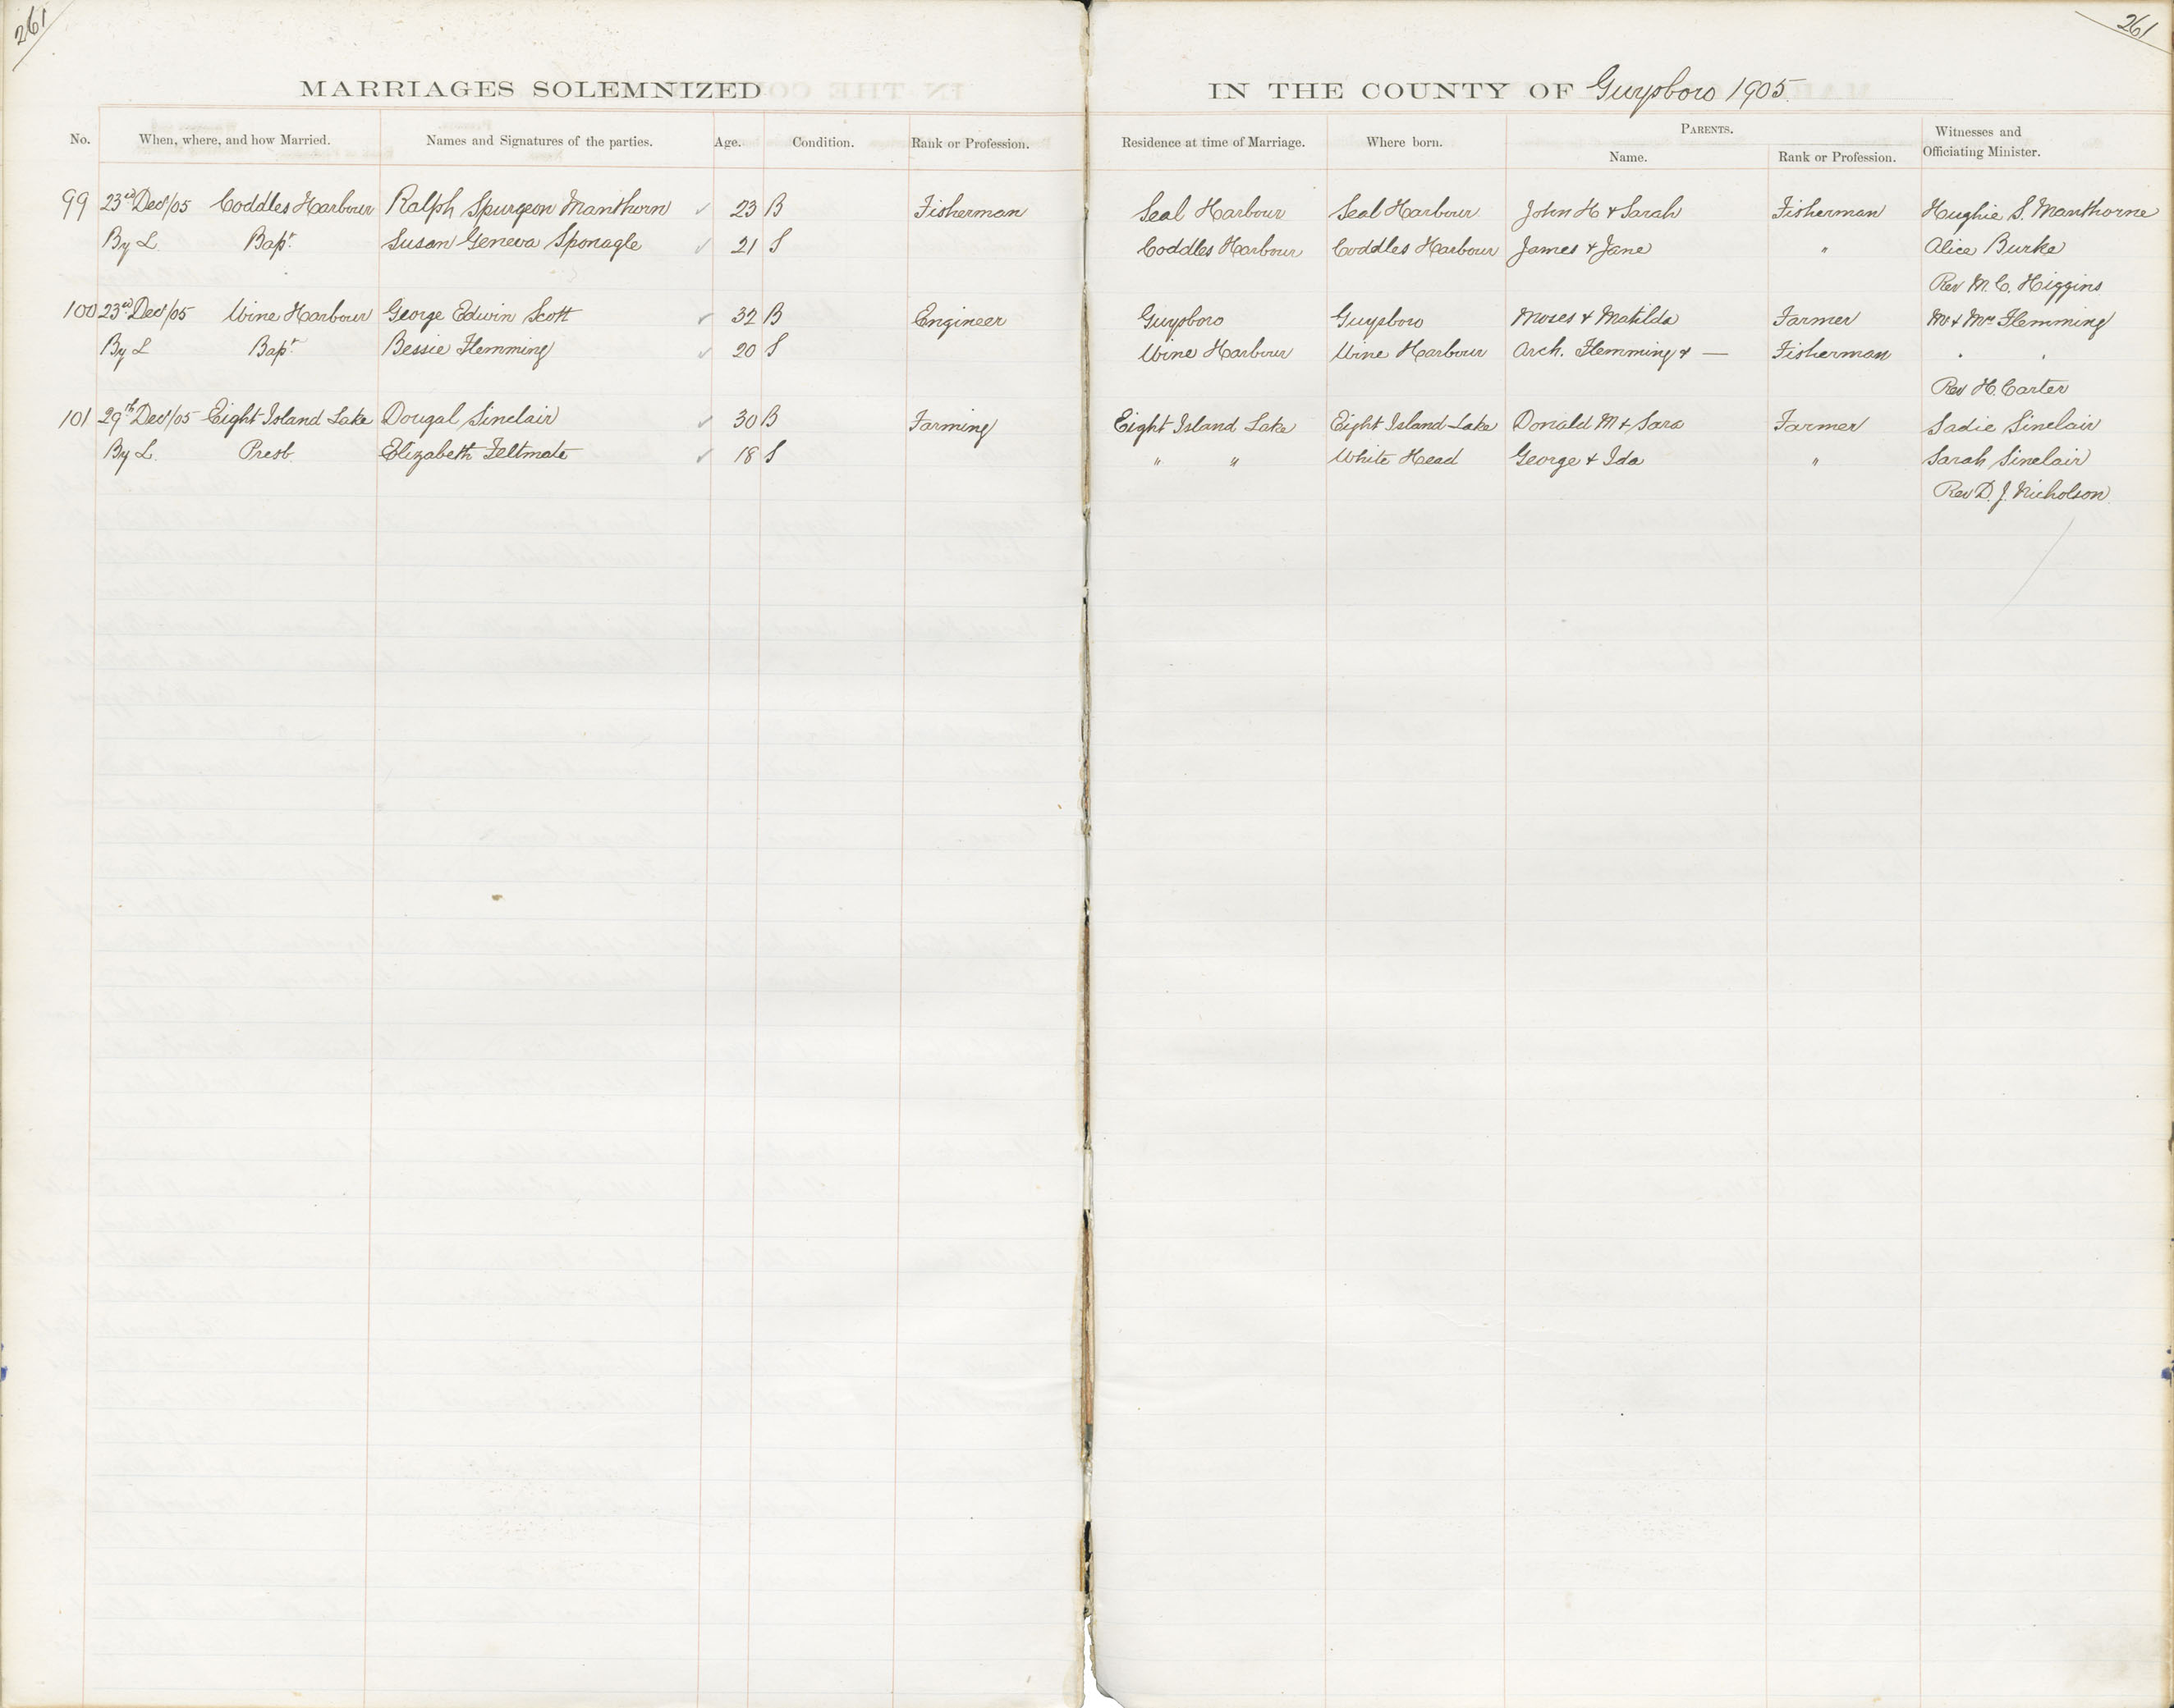 261
261
MARRIAGES SOLEMNIZED IN THE COUNTY OF Guysboro 1905.
No. When, where, and how Married. Names and Signatures of the parties. Age. Condition. Rank or Profession. Residence at time of Marriage. Where born. PARENTS. Name. Rank or Profession. Witnesses and Officiating Minister.
99 23rd Dec/05 Coddles Harbour Ralph Spurgeon Manthorn 23 B Fisherman Seal Harbour Seal Harbour John H & Sarah Fisherman Hughie S. Manthorne
By L Bapt. Susan Geneva Sponagle 21 S Coddles Harbour Coddles Harbour James & Jane " Alice Burke
Rev M. C. Higgins
100 23rd Dec/05 Wine Harbour George Edwin Scott 32 B Engineer Guysboro Guysboro Moses & Matilda Farmer Mr & Mrs Flemming
By L Bapt. Bessie Flemming 20 S Wine Harbour Wine Harbour Arch. Flemming & — Fisherman " "
Rev H. Carter
101 29th Dec/05 Eight Island Lake Dougal Sinclair 30 B Farming Eight Island Lake Eight Island Lake Donald M & Sara Farmer Sadie Sinclair
By L. Presb. Elizabeth Feltmate 18 S " " White Head George & Ida " Sarah Sinclair
Rev D. J. Nicholson